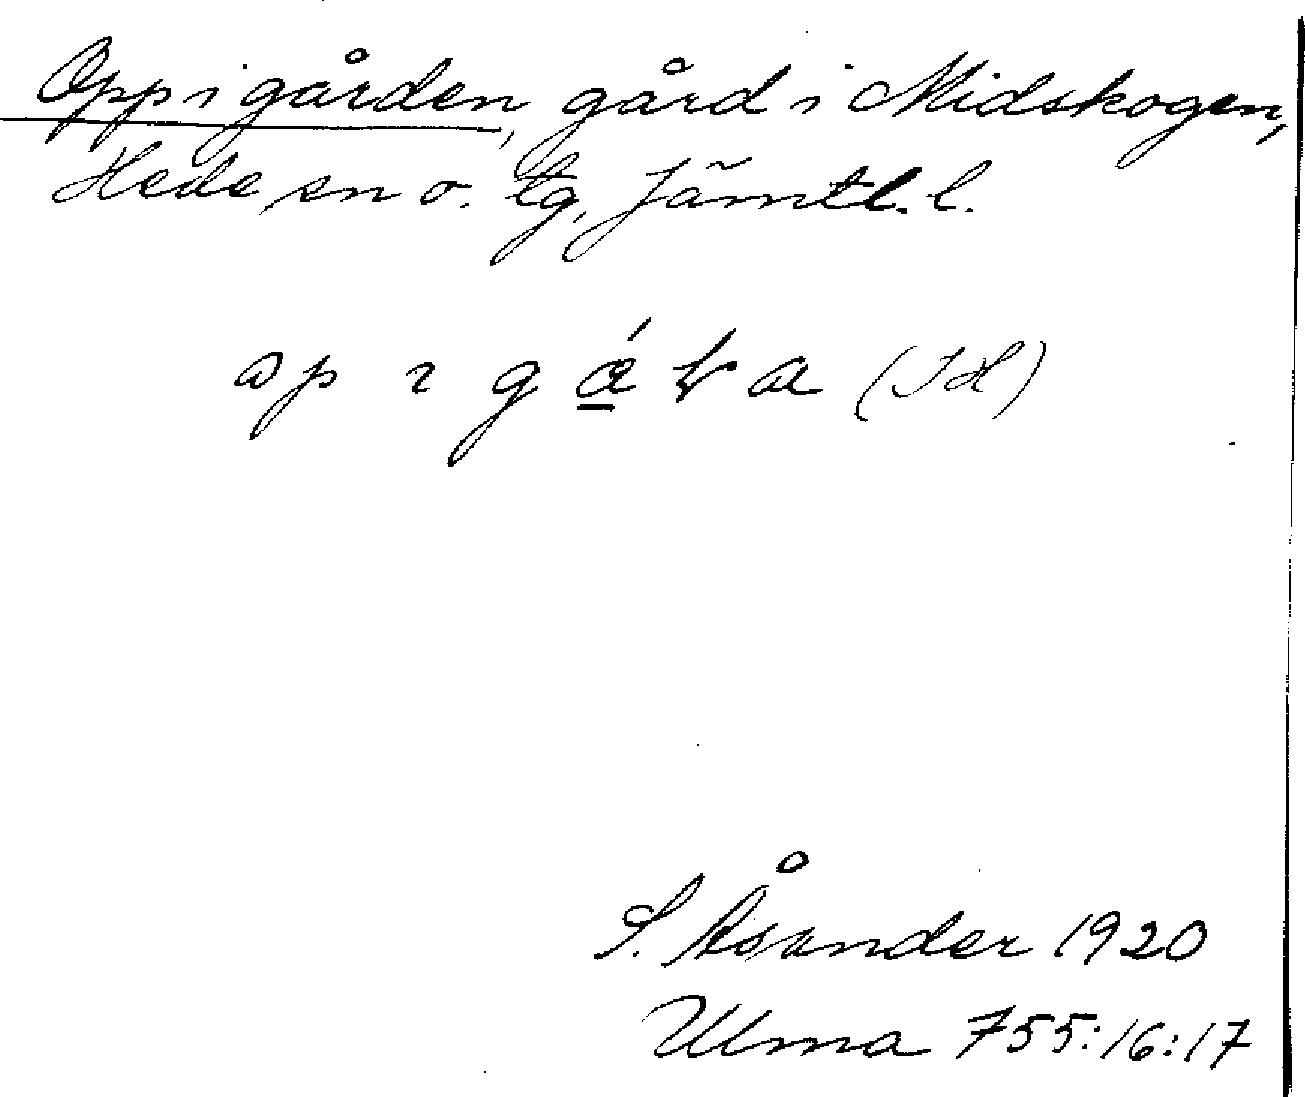 Oppigården, gård i Midskogen,
Hede sn o. tg, Jämtl. l.
op ı g
S. Åsander 1920
Ulma 755:16:17